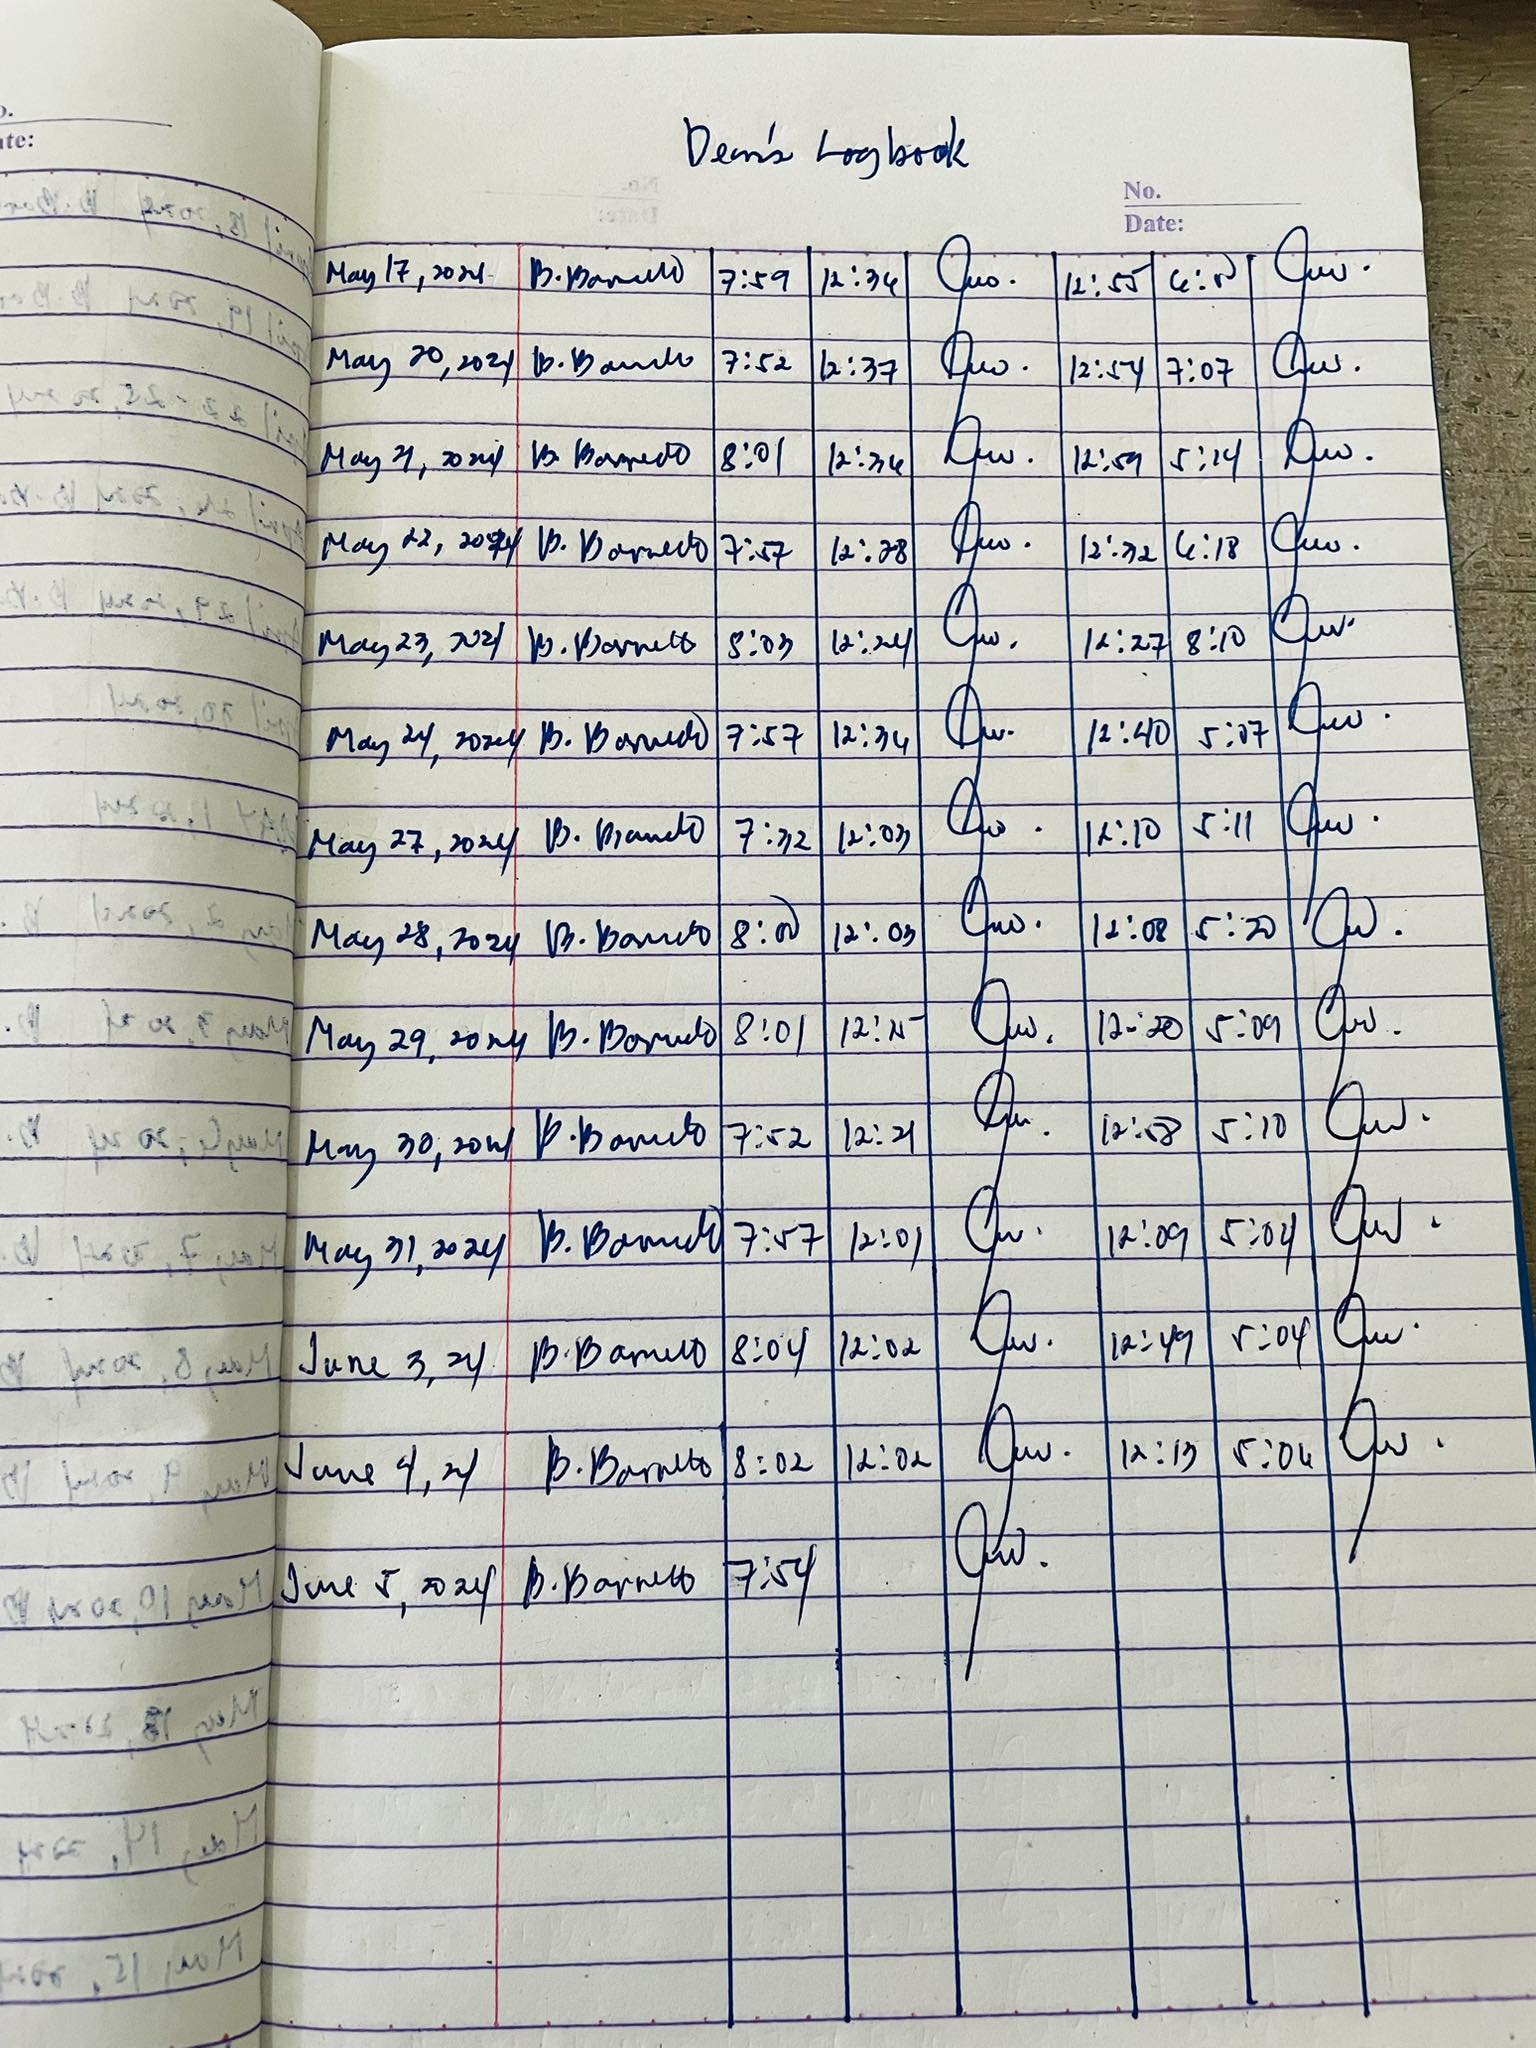 Dean's Logbook
No.
Date:
May 17, 2024 B. Barnedo 7:59 12:36 12:55 6:00
May 20, 2024 B. Barnedo 7:52 12:37 12:54 7:07
May 21, 2024 B. Barnedo 8:01 12:36 12:59 5:14
May 22, 2024 B. Barnedo 7:57 12:28 12:32 6:18
May 23, 2024 B. Barnedo 8:03 12:24 12:27 8:10
May 24, 2024 B. Barnedo 7:57 12:36 12:40 5:07
May 27, 2024 B. Barnedo 7:32 12:03 12:10 5:11
May 28, 2024 B. Barnedo 8:00 12:03 12:08 5:20
May 29, 2024 B. Barnedo 8:01 12:15 12:20 5:09
May 30, 2024 B. Barnedo 7:52 12:21 12:58 5:10
May 31, 2024 B. Barnedo 7:57 12:01 12:09 5:04
June 3, 24 B. Barnedo 8:04 12:02 12:49 5:04
June 4, 24 B. Barnedo 8:02 12:02 12:13 5:06
June 5, 2024 B. Barnedo 7:54